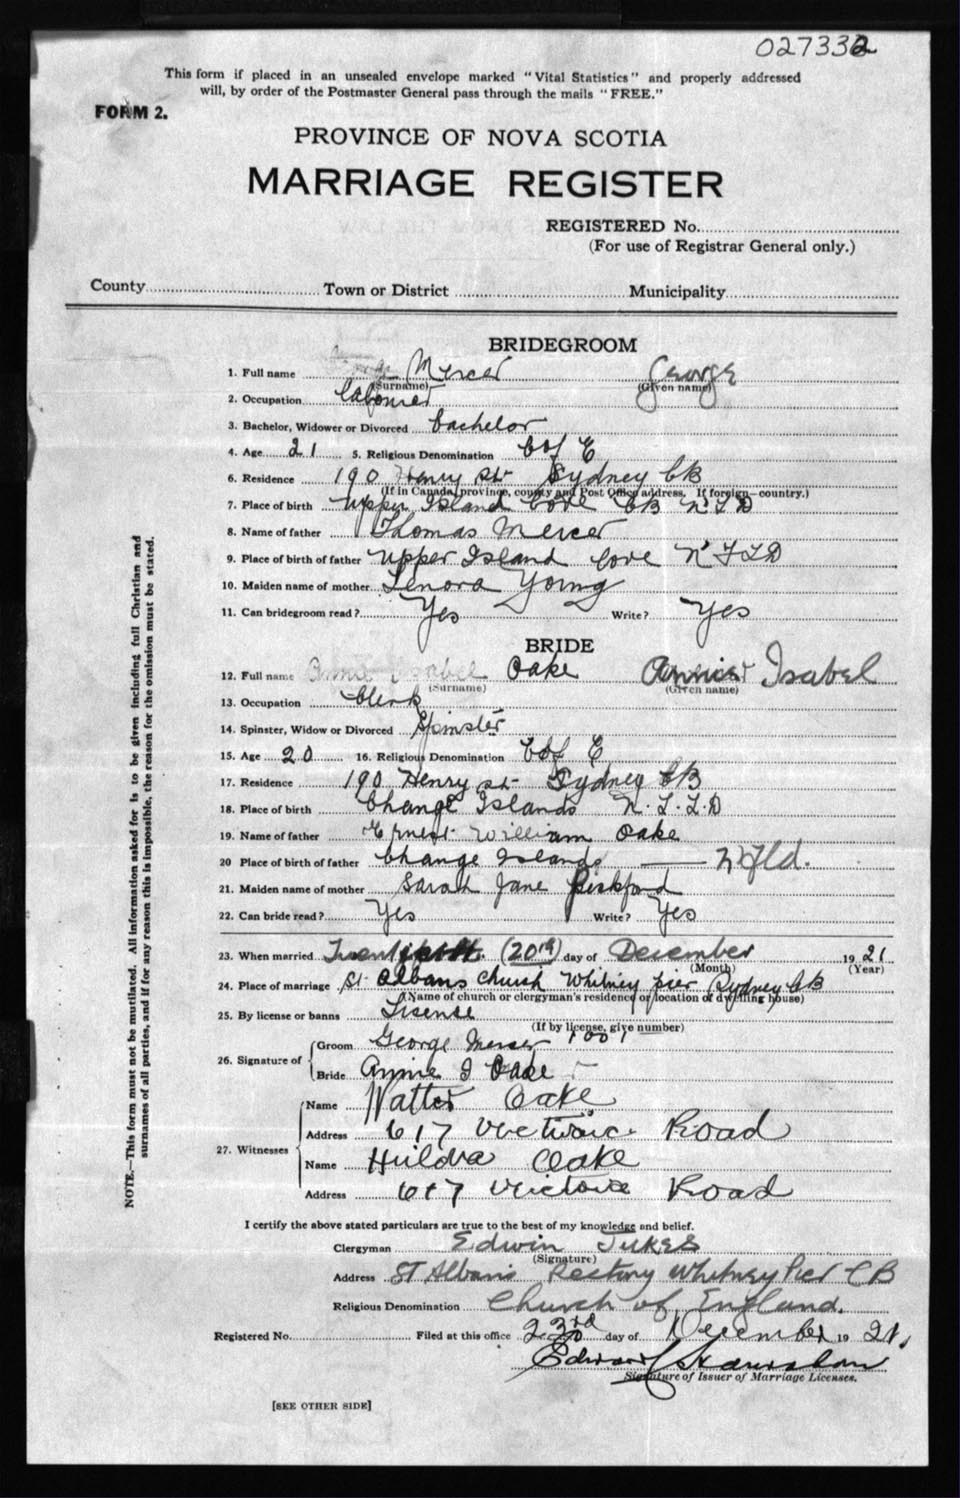 027332
This form if placed in an unsealed envelope marked "Vital Statistics" and properly addressed
will, by order of the Postmaster General pass through the mails "FREE."
FORM 2.
PROVINCE OF NOVA SCOTIA
MARRIAGE REGISTER
REGISTERED No.
(For use of Registrar General only.)
County Town or District Municipality
BRIDEGROOM
1. Full name Mercer George
(Surname) (Given name)
2. Occupation Labourer
3. Bachelor, Widower or Divorced bachelor
4. Age 21 5. Religious Denomination C of E
6. Residence 190 Henry St Sydney CB
(If in Canada, province, county and Post Office address. If foreign—country.)
7. Place of birth Upper Island Cove CB NFD
8. Name of father Thomas Mercer
9. Place of birth of father Upper Island Cove NFLD
10. Maiden name of mother Lenora Young
11. Can bridegroom read? Yes Write? Yes
BRIDE
12. Full name Anna Isabel Oake Annie Isabel
(Surname) (Given name)
13. Occupation Clerk
14. Spinster, Widow or Divorced Spinster
15. Age 20 16. Religious Denomination C of E
17. Residence 190 Henry St Sydney CB
18. Place of birth Change Islands N.F.L.D
19. Name of father Ernest William Oake
20 Place of birth of father Change Islands — Nfld.
21. Maiden name of mother Sarah Jane
22. Can bride read? Yes Write? Yes
23. When married (20th) day of December 1921
(Month) (Year)
24. Place of marriage St Albans Church Whitney Pier Sydney CB
(Name of church or clergyman's residence or location of dwelling house)
25. By license or banns Lisense
(If by license, give number)
1001
26. Signature of
Groom George Mercer
Bride Annie I Oake
27. Witnesses
Name Walter Oake
Address 617 Road
Name Huldra Oake
Address 617 Victoria Road
I certify the above stated particulars are true to the best of my knowledge and belief.
Clergyman Edwin Jukes
(Signature)
Address St Albans Rectory Whitney Pier CB
Religious Denomination Church of England.
Registered No. Filed at this office 23rd day of December 1921.
Signature of Issuer of Marriage Licenses.
[SEE OTHER SIDE]
NOTE.—This form must not be mutilated. All information asked for is to be given including full Christian and
surnames of all parties, and if for any reason this is impossible, the reason for the omission must be stated.